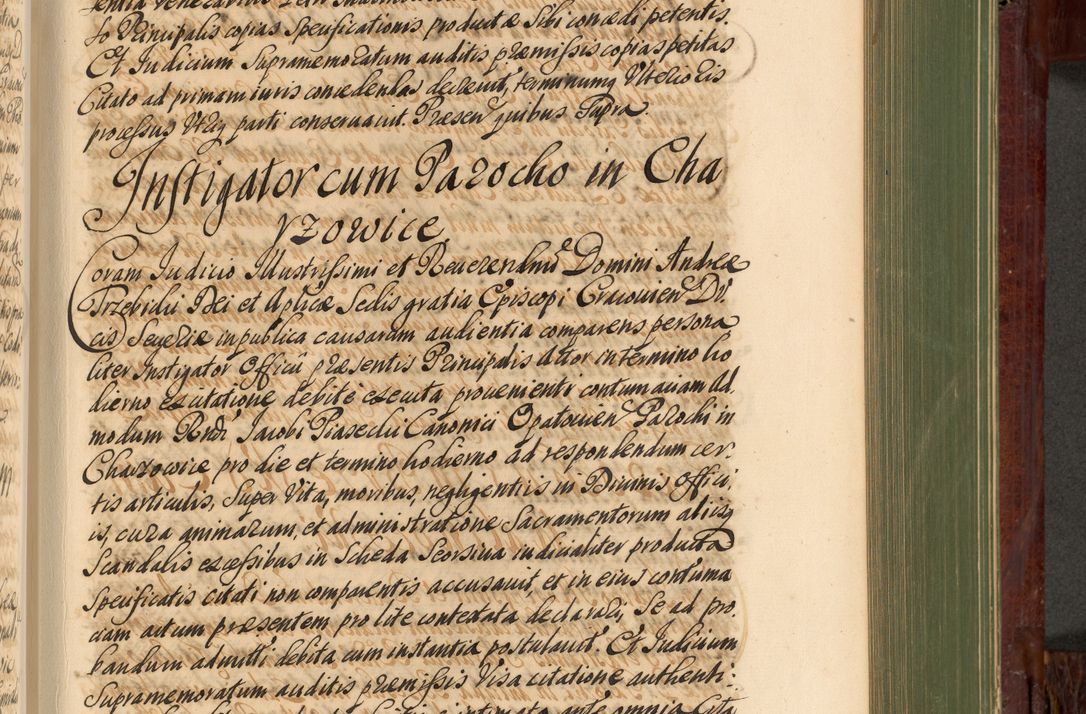 so Principalis copias specificationis productæ sibi concedi petentis.
Et Judicium Supramemoratum auditis præmissis copias petitas
Citato ad primam iuris concedendas decreuit, terminumq Vlterioris
processus Vtriq parti conseruauit. Præsen quibus Supra.
Instigator cum Parocho in Cha
rzowice
Coram Iudicio Illustrissimi et Reuerendmi Domini Andreæ
Trzebicki Dei et Aplicæ Sedis gratia Episcopi Cracouien Du
cis Seueriæ in publica causarum audientia comparens persona
liter Instigator Officii præsentis Principalis Actor in termino ho
dierno ex citatione debite executa prouenienti contumaciam Ad
modum Rndi Iacobi Piasecki Canonici Opatouien Parochi in
Charzowice pro die et termino hodierno ad respondendum cer
tis articulis, Super Vita, moribus, negligentiis in Diuinis offici
is, cura animarum, et administratione Sacramentorum aliisq
Scandalis excessibus in Scheda Seorsiua iudicialiter producta
specificatis citati non comparentis accusauit, et in eius contuma
ciam actum præsentem pro lite contestata declarari, Se ad pro
bandum admitti debita cum instantia postulauit. Et Iudicium
Supramemoratum auditis præmissis Visa citatione authenti:
et intimata ante omnia Cita